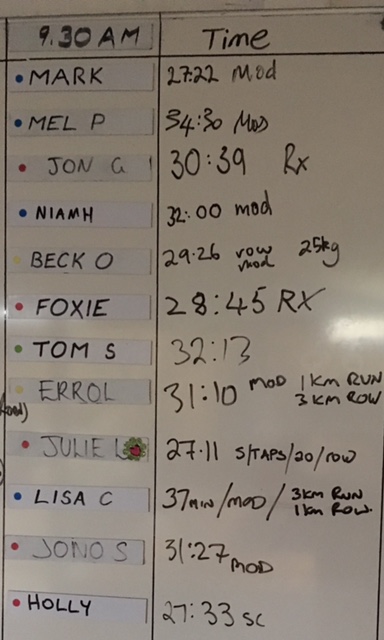 9.30 AM Time
MARK 27:22 Mod
MEL P 34:30 Mod
JON G 30:39 Rx
NIAMH 32:00 mod
BECK O 29.26 row mod 25kg
FOXIE 28:45 RX
TOM S 32:13
ERROL 31:10 MOD 1KM RUN
3KM ROW
JULIE L 27.11 S/TAPS/20/ROW
LISA C 37MIN/MOD/ 3KM RUN
1KM ROW.
JONO S 31:27 MOD
HOLLY 27:33 SC